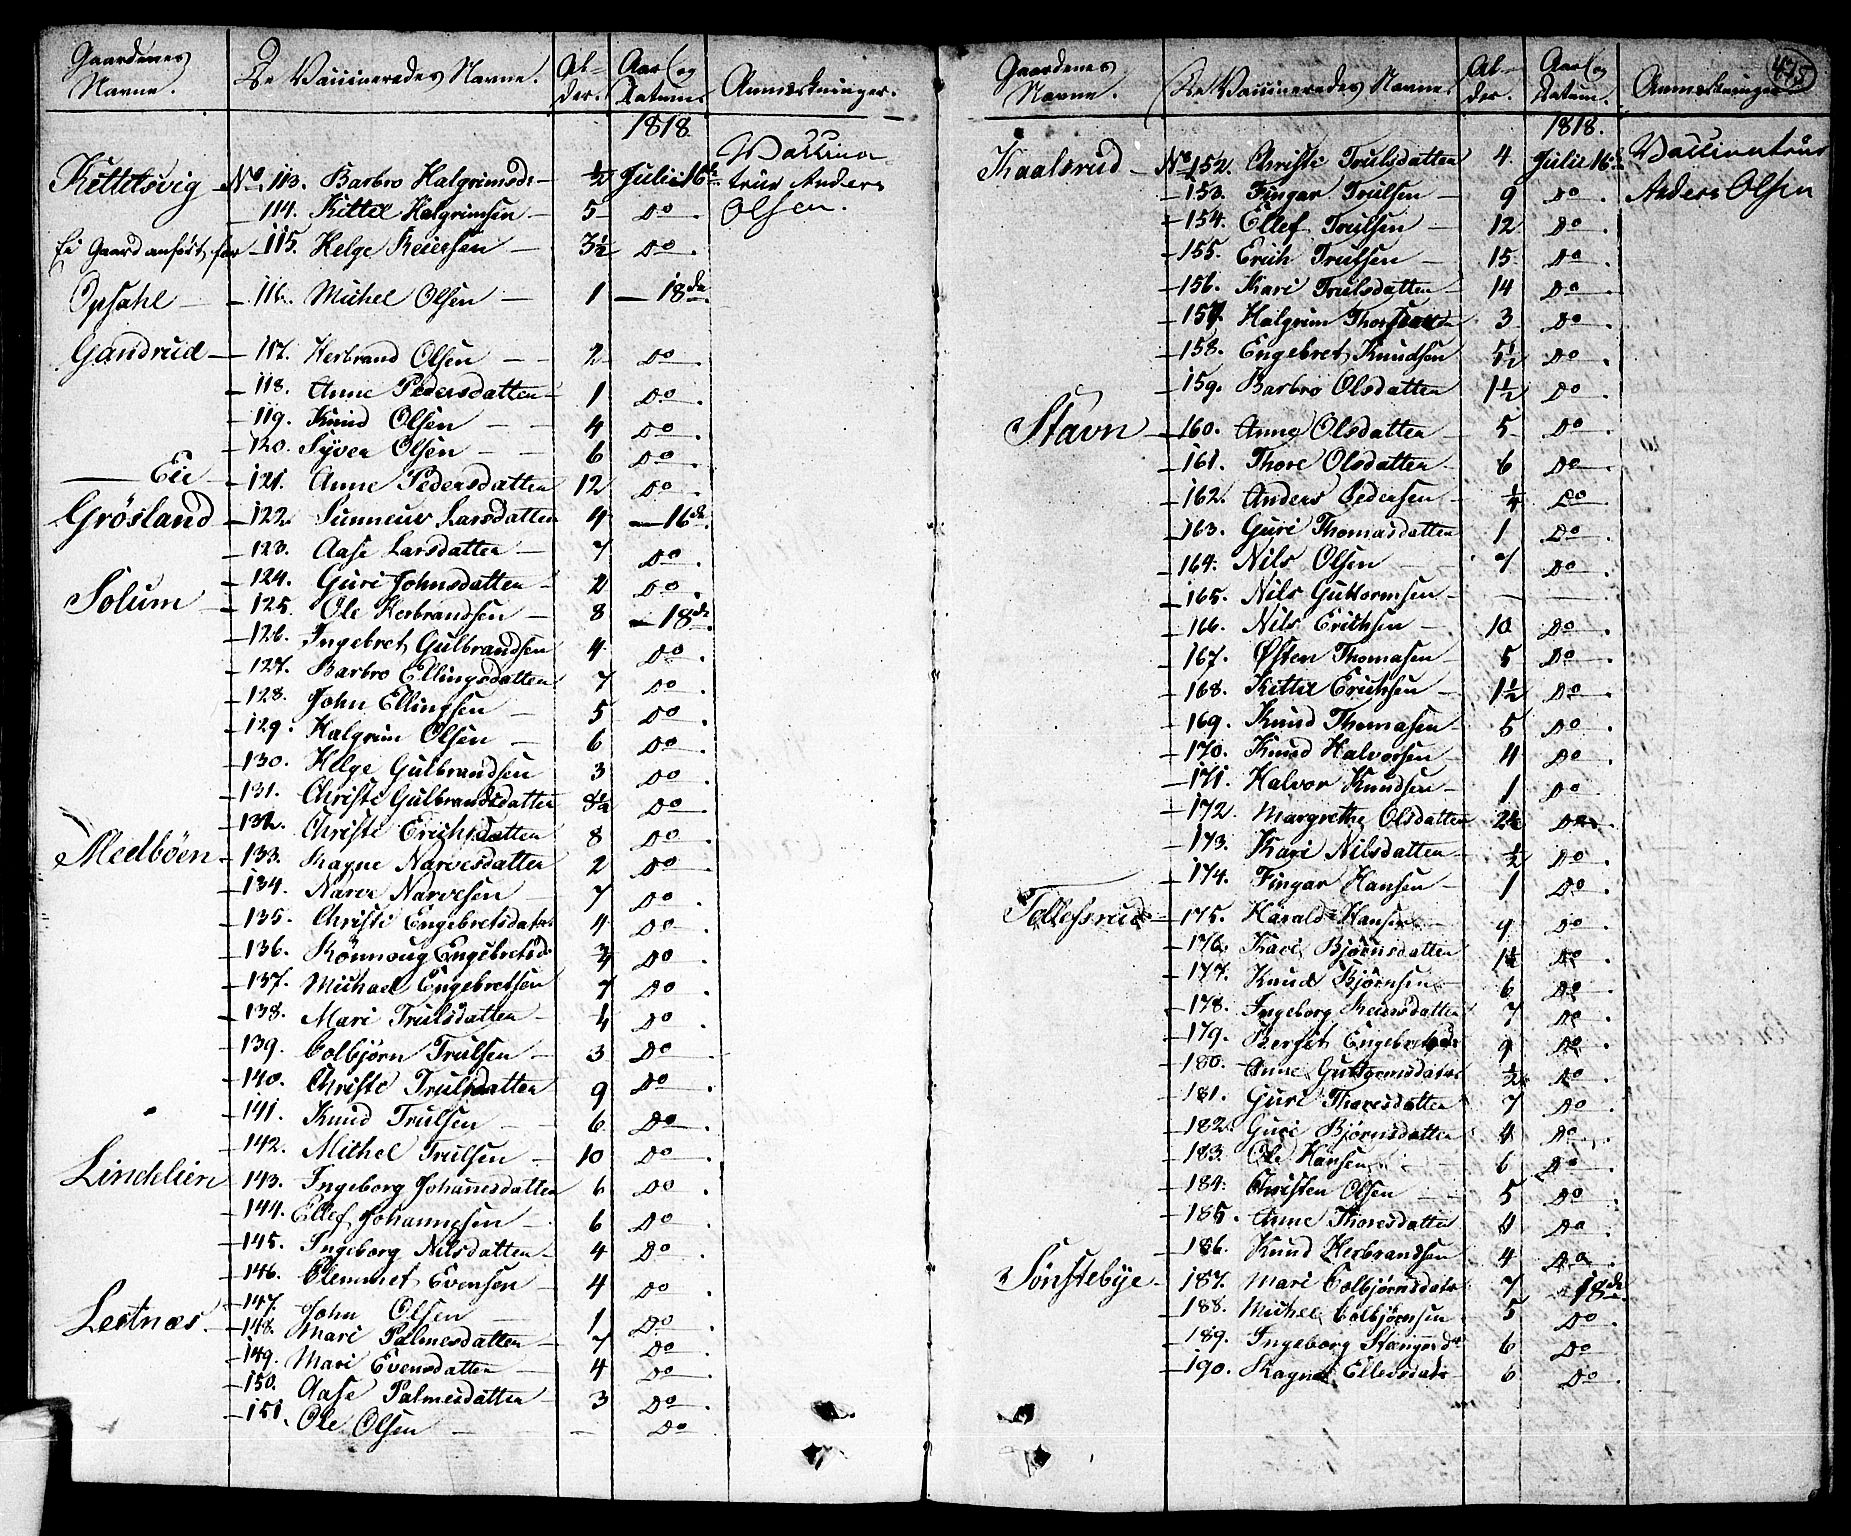 Gaardenes Navne. De Vaccineredes Navne. Al-der. Aar og Datum. Anmærkninger.
1818
Kittelsvig No 113. Barbro Halgrimsdr ½ Julii 16de Vaccina-
114. Kittil Halgrimsen 5 Do teur Anders
Olsen.
Ei Gaard anført for 115. Helge Reiersen 3½ Do
Opsahl 116. Michel Olsen 1 18de
Gandrud 117. Herbrand Olsen 2 Do
118. Anne Pedersdatter 1 Do
119. Knud Olsen 4 Do
120. Syver Olsen 6 Do
Eie 121. Anne Pedersdatter 12 Do
Grösland 122. Sunneuv Larsdatter 4 16de
123. Aase Larsdatter 7 Do
124. Guri Johnsdatter 2 Do
Solum 125. Ole Herbrandsen 8 18de
126. Ingebret Gulbrandsen 4 Do
127. Barbro Ellingsdatter 7 Do
128. John Ellingsen 5 Do
129. Halgrim Olsen 6 Do
130. Helge Gulbrandsen 3 Do
131. Christi Gulbrandsdatter 8½ Do
132. Christi Erichsdatter 8 Do
Medböen 133. Ragne Narvesdatter 2 Do
134. Narve Narvesen 7 Do
135. Christi Engebretsdatr 4 Do
136. Rönnoug Engebretsd Do
137. Michael Engebretsen 7 Do
138. Mari Trulsdatter Do
139. Colbjörn Trulsen 3 Do
140. Christi Trulsdatter 9 Do
141. Knud Trulsen 6 Do
142. Mithel Trulsen 10 Do
Lindelien 143. Ingeborg Johannesdatter 6 Do
144. Ellef Johannesen 6 Do
145. Ingeborg Nilsdatter 4 Do
146. Clemmet Evensen 4 Do
147. John Olsen 1 Do
Lestnæs. 148. Mari Palmesdatter 7 Do
149. Mari Evensdatter 4 Do
150. Aase Palmesdatter 3 Do
151. Ole Olsen Do
475
Gaardenes Navne. De Vaccineredes Navne Al-der. Aar og Datum. Anmærkninger
1818.
Kaalsrud No 152. Christi Trulsdatter 4 Julii 16de Vaccinateur
153. Fingar Trulsen 9 Do Anders Olsen
154. Ellef Trulsen 12 Do
155. Erich Trulsen 15 Do
156. Kari Trulsdatter 14 Do
157. Halgrim 3 Do
158. Engebret Knudsen 5½ Do
159. Barbro Olsdatter 1½ Do
Stavn 160. Anne Olsdatter 5 Do
161. Thore Olsdatter 6 Do
162. Anders Pedersen ¼ Do
163. Guri Thomasdatter 1 Do
164. Nils Olsen 7 Do
165. Nils Guttormsen
166. Nils Erichsen 10 Do
167. Østen Thomasen 5 Do
168. Kittil Erichsen 1½ Do
169. Knud Thomasen 5 Do
170. Knud Halvorsen 4 Do
171. Halvor Knudsen 1 Do
172. Margrethe Olsdatter 2½ Do
173. Kari Nilsdatter ½ Do
174. Fingar Hansen 1 Do
Tollefsrud 175. Harald Hansen 9 Do
176. Kari Bjørnsdatter Do
177. Knud Bjørnsen 6 Do
178. Ingeborg Knudsdatter 7 Do
179. Berset Engebretsdr 9 Do
180. Anne Guttormsdatr ½ Do
181. Guri Thoresdatter 7 Do
182. Guri Bjørnsdatter 4 Do
183. Ole Hansen 6 Do
184. Christen Olsen 5 Do
185. Anne Thoresdatter 4 Do
186. Knud Herbrandsen 4 Do
Sönstebye 187. Mari Colbjörnsdatr 7 18de
188. Michel Colbjörnsen 5 Do
189. Ingeborg 6 Do
190. Ragne 6 Do